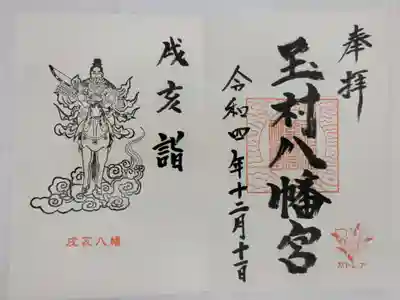 奉拝
玉村八幡宮
令和四年十二月十一日
カトレア
戌亥詣
戌亥八幡